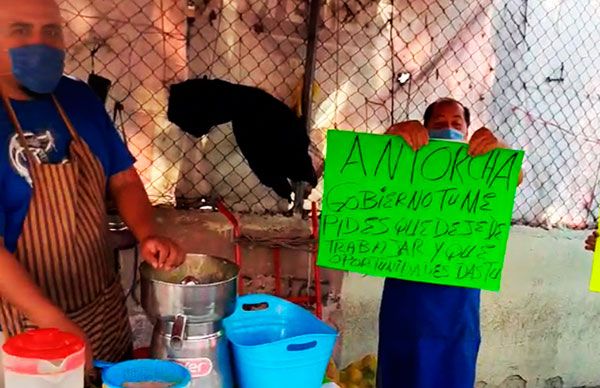 ANTORCHA
GOBIERNO TU ME
PIDES QUE DEJE DE
TRABAJAR Y QUE
OPORTUNIDADES DAS TU